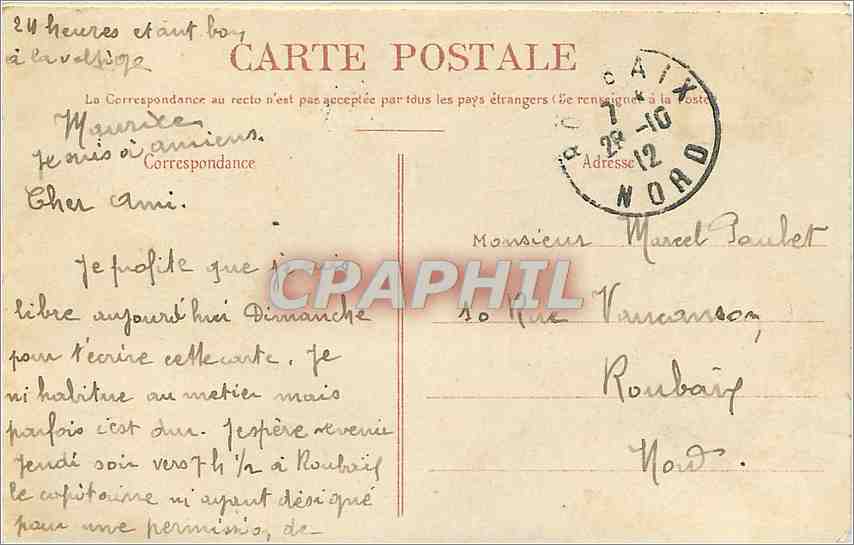 24 heures etant bon
à la voltige
CARTE POSTALE
La Correspondance au recto n'est pas acceptée par tous les pays étrangers (Se renseigner à la Poste)
Maurice
Je suis à amiens.
Correspondance
Cher ami.
Je profite que je suis
libre aujourd'hui Dimanche
pour t'écrire cette carte. Je
m'habitue au metier mais
parfois c'est dur. J'espère revenir
Jeudi soir vers 7 h 1/2 à Roubaix
le capitaine m'ayant désigné
pour une permission de
Adresse
ROUBAIX
7 *
28 -10
12
NORD
Monsieur Marcel Paulet
10 Rue Vaucanson,
Roubaix
Nord.
CPAPHIL